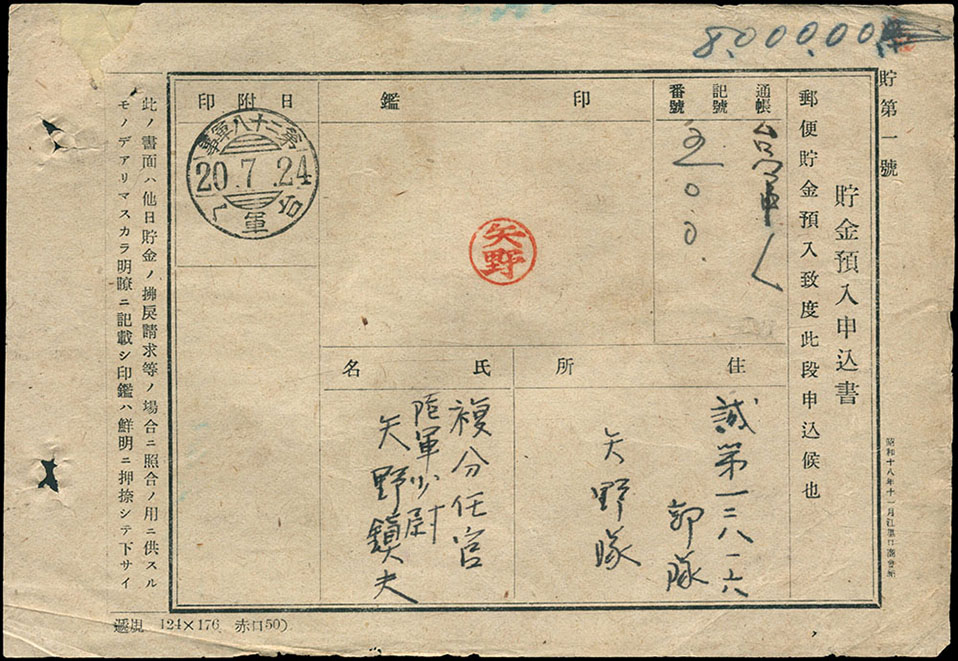 8,000.00
貯第一號
貯金預入申込書
郵便貯金預入致度此段申込候也
通帳
記號
番號
台軍く
五〇〇
印鑑
矢野
日附印
第三十八軍事
20.7.24
台軍
住所
誠第一二八一六
部隊
矢野隊
氏名
複分任官
陸軍少尉
矢野鎭夫
此ノ書面ハ他日貯金ノ拂戾請求等ノ場合ニ照合ノ用ニ供スル
モノデアリマスカラ明瞭ニ記載シ印鑑ハ鮮明ニ押捺シテ下サイ
昭和十八年十一月江墨日商會納
124×176 赤口50)